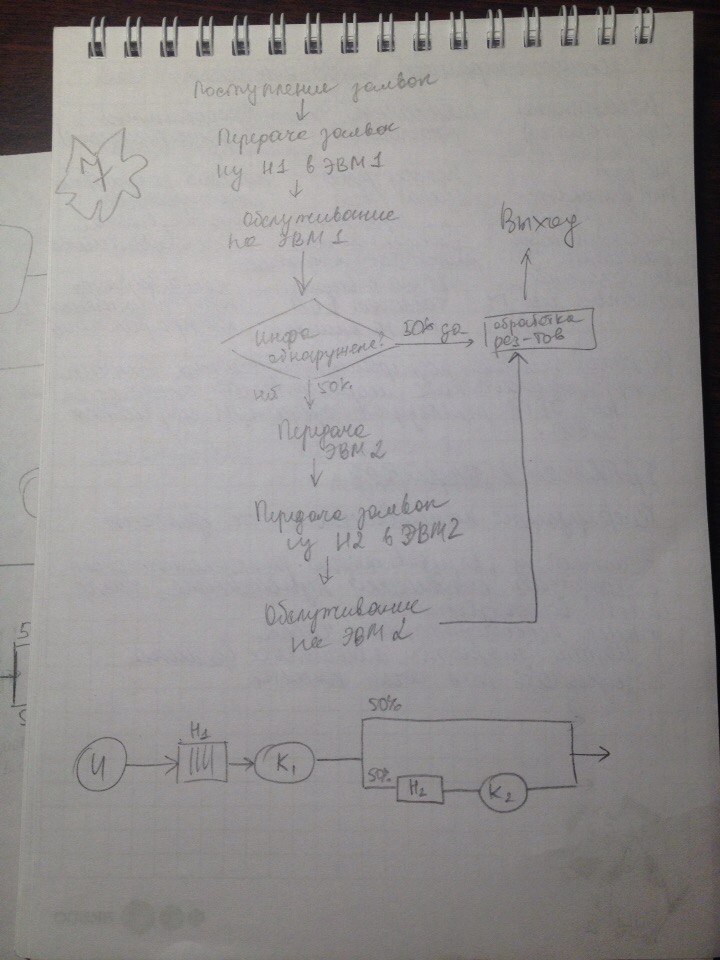 Поступление заявок
Передача заявок
из Н1 в ЭВМ1
7
Обслуживание
на ЭВМ1
Выход
инфа
обнаружена?
50% да
обработка
рез-тов
нет 50%
Передача
ЭВМ2
Передача заявок
из Н2 в ЭВМ2
Обслуживание
на ЭВМ2
50%
Н1
И
К1
50%
Н2
К2
5